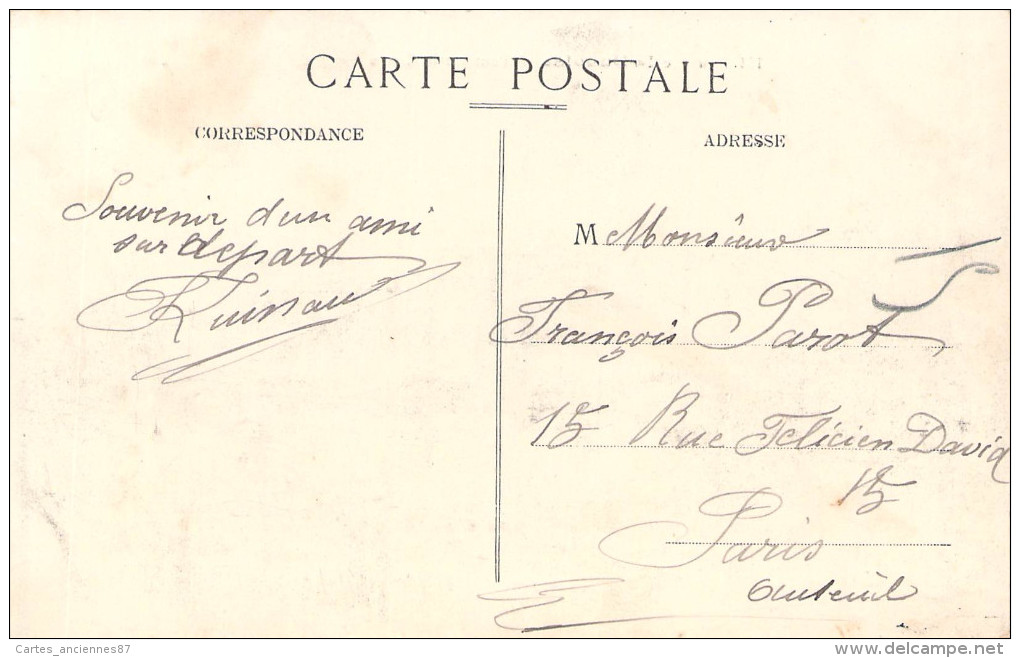 CARTE POSTALE
CORRESPONDANCE
Souvenir d'un ami
sur depart
ADRESSE
M Monsieur
François Parot
15 Rue Felicien David
15
Paris
Auteuil
Cartes_anciennes87